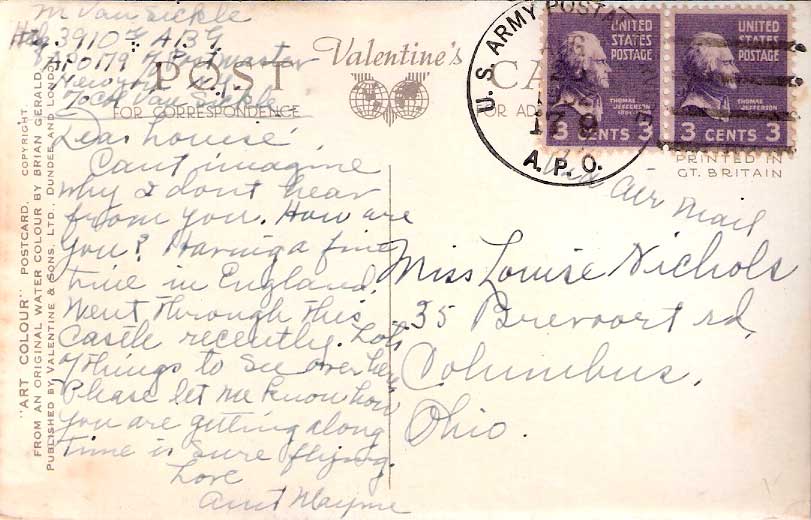 M Van Sickle
3910th A B G
APO 179 % Postmaster
New York N.Y.
% Col Van Sickle
POST Valentine's CA
FOR CORRESPONDENCE FOR AD
Dear Louise,
Can't imagine
why I dont hear
from you. How are
you? Having a fine
time in England.
Went through this
castle recently. Lots
of things to see over here
Please let me know how
you are getting along
time is sure flying.
Love
Aunt Mayme
U.S. ARMY POSTA
17 9
A.P.O.
UNITED STATES POSTAGE
THOMAS JEFFERSON
3 CENTS 3
UNITED STATES POSTAGE
THOMAS JEFFERSON
3 CENTS 3
PRINTED IN
GT. BRITAIN
Via Air Mail
Miss Louise Nichols
35 Brevoort rd,
Columbus,
Ohio.
"ART COLOUR" POSTCARD. COPYRIGHT.
FROM AN ORIGINAL WATER COLOUR BY BRIAN GERALD,
PUBLISHED BY VALENTINE & SONS, LTD., DUNDEE AND LONDON